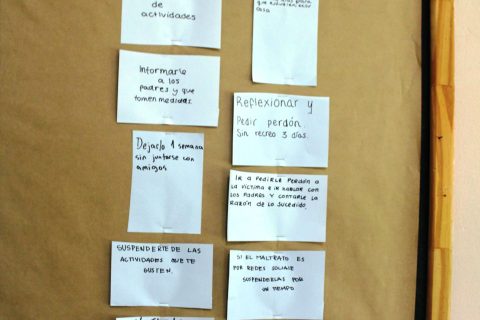 de
actividades
Informarle
a los
padres y que
tomen medidas.
Dejarlo 1 semana
sin juntarse con
amigos
SUSPENDERTE DE LAS
ACTIVIDADES QUE TE
GUSTEN.
casa
Reflexionar y
Pedir perdón.
Sin recreo 3 días.
IR A PEDIRLE PERDÓN A
LA VÍCTIMA E IR HABLAR CON
LOS PADRES Y CONTARLE LA
RAZÓN DE LO SUCEDIDO.
SI EL MALTRATO ES
POR REDES SOCIALE
SUSPENDERLAS POR
UN TIEMPO.